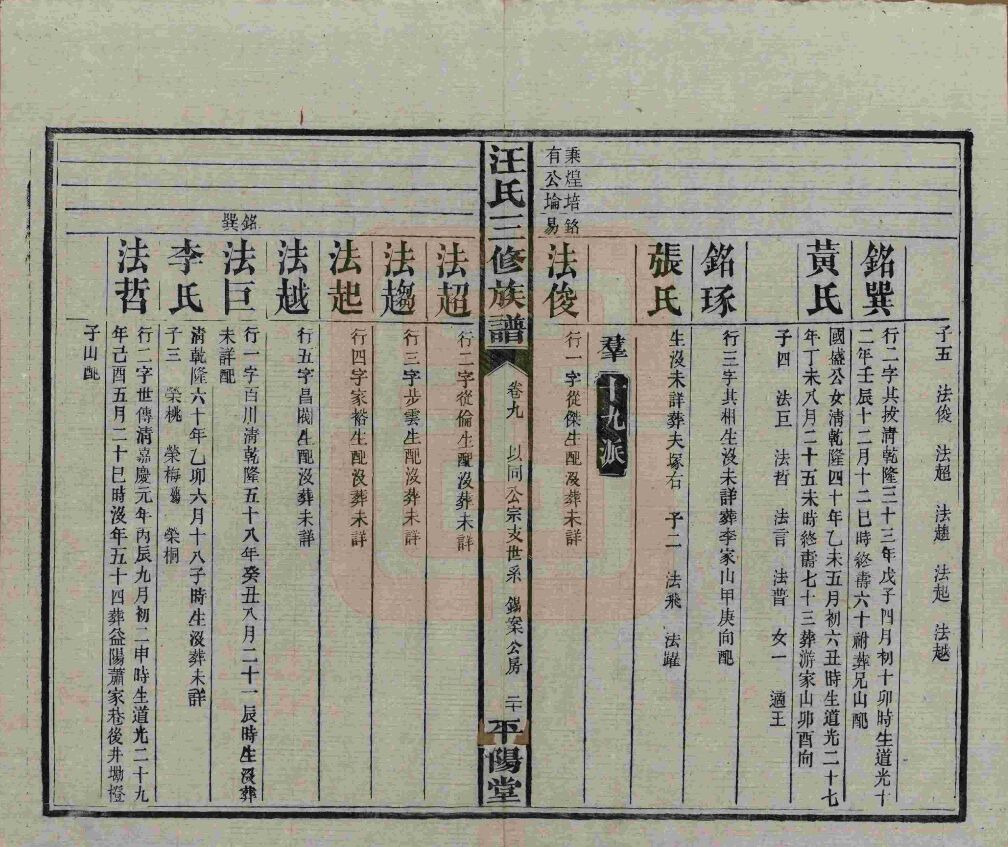 子五　法俊　法超　法趨　法起　法越
銘巽
行二字其拔清乾隆三十三年戊子四月初十卯時生道光十
二年壬辰十二月十二巳時終壽六十祔葬兄山配
黃氏
國盛公女清乾隆四十年乙未五月初六丑時生道光二十七
年丁未八月二十五未時終壽七十三葬游家山卯酉向
子四　法巨　法哲　法言　法普　女一　適王
銘琢
行三字其相生沒未詳葬李家山甲庚向配
張氏
生沒未詳葬夫塚右　子二　法飛　法躍
羣
十九派
秉煌培銘
有公埨易
法俊
行一字從傑生配沒葬未詳
汪氏三修族譜
卷九　以同公宗支世系　錫案公房　二十
平陽堂
法超
行二字從倫生配沒葬未詳
法趨
行三字步雲生配沒葬未詳
法起
行四字家裕生配沒葬未詳
法越
行五字昌閥生配沒葬未詳
銘巽
法巨
行一字百川清乾隆五十八年癸丑八月二十一辰時生沒葬
未詳配
李氏
清乾隆六十年乙卯六月十八子時生沒葬未詳
子三　榮桃　榮梅　榮桐
法哲
行二字世傳清嘉慶元年丙辰九月初二申時生道光二十九
年己酉五月二十巳時沒年五十四葬益陽蕭家巷後井坳橙
子山配